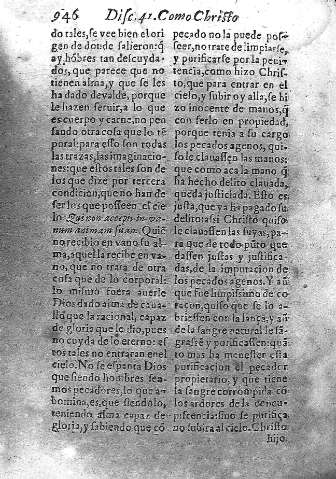 946 Disc. 41. Como Christo
do tales, se vee bien el ori
gen de donde salieron: q̃
ay, hõbres tan descuyda-
dos, que parece que no
tienen alma, y que se les
ha dado devalde, porque
le hazen seruir, a lo que
es cuerpo y carne, no pen
sando otra cosa que lo tẽ
poral: para esso son todas
las trazas, las imaginacio-
nes: que estos tales son de
los que dize por tercera
condicion, que no han de
ser los que posseen el cie
lo Qui non accepit in va-
num animam suam. Quiẽ
no recibio en vano su al-
ma, aquel la recibe en va-
no, que no trata de otra
cosa que de lo corporal:
lo mismo fuera auerle
Dios dado alma de caua-
llo que la racional, capaz
de gloria que le dio, pues
no cuyda de lo eterno: es
tos tales no entraran en el
cielo. No se espanta Dios
que siendo hombres sea-
mos pecadores, lo que a-
bomina, es, que siendolo,
teniendo alma capaz de
gloria, y sabiendo que cõ
pecado no la puede pos-
seer, no trate de limpiarse,
y purificarse por la peni-
tencia, como hizo Chris-
to, que para entrar en el
cielo, y subir oy alla, se hi
zo inocente de manos, q̃
con serlo en propiedad,
porque tenia a su cargo
los pecados agenos, qui-
so le clauassen las manos:
que como aca la mano q̃
ha hecho delito clauada,
queda justiciada. Esto es
justa, que ya ha pagado su
delito: assi Christo quiso
le clauassen las suyas, pa-
ra que de todo puto que
dassen justas y justifica-
das, de la imputacion de
los pecados agenos. Y aũ
que fue limpissimo de co-
raçon, quiso que se la a-
briessen con la lança, y aũ
de la sangre natural se sã-
grasse y purificassen: quã
to mas ha menester esta
purificacion el pecador
propietario, y que tiene
la sangre corrompida cõ
los ardores de la concu-
piscencia: sino se purifica,
no subira al cielo. Christo
hijo.